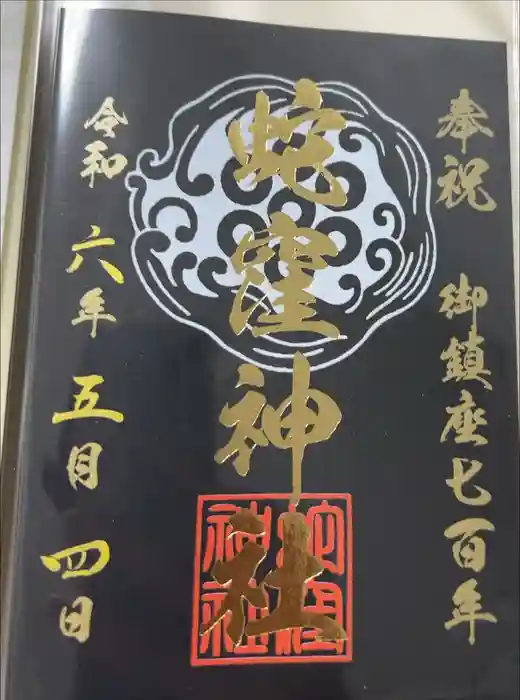 奉祝 御鎮座七百年
蛇窪神社
令和六年五月四日
蛇窪神社